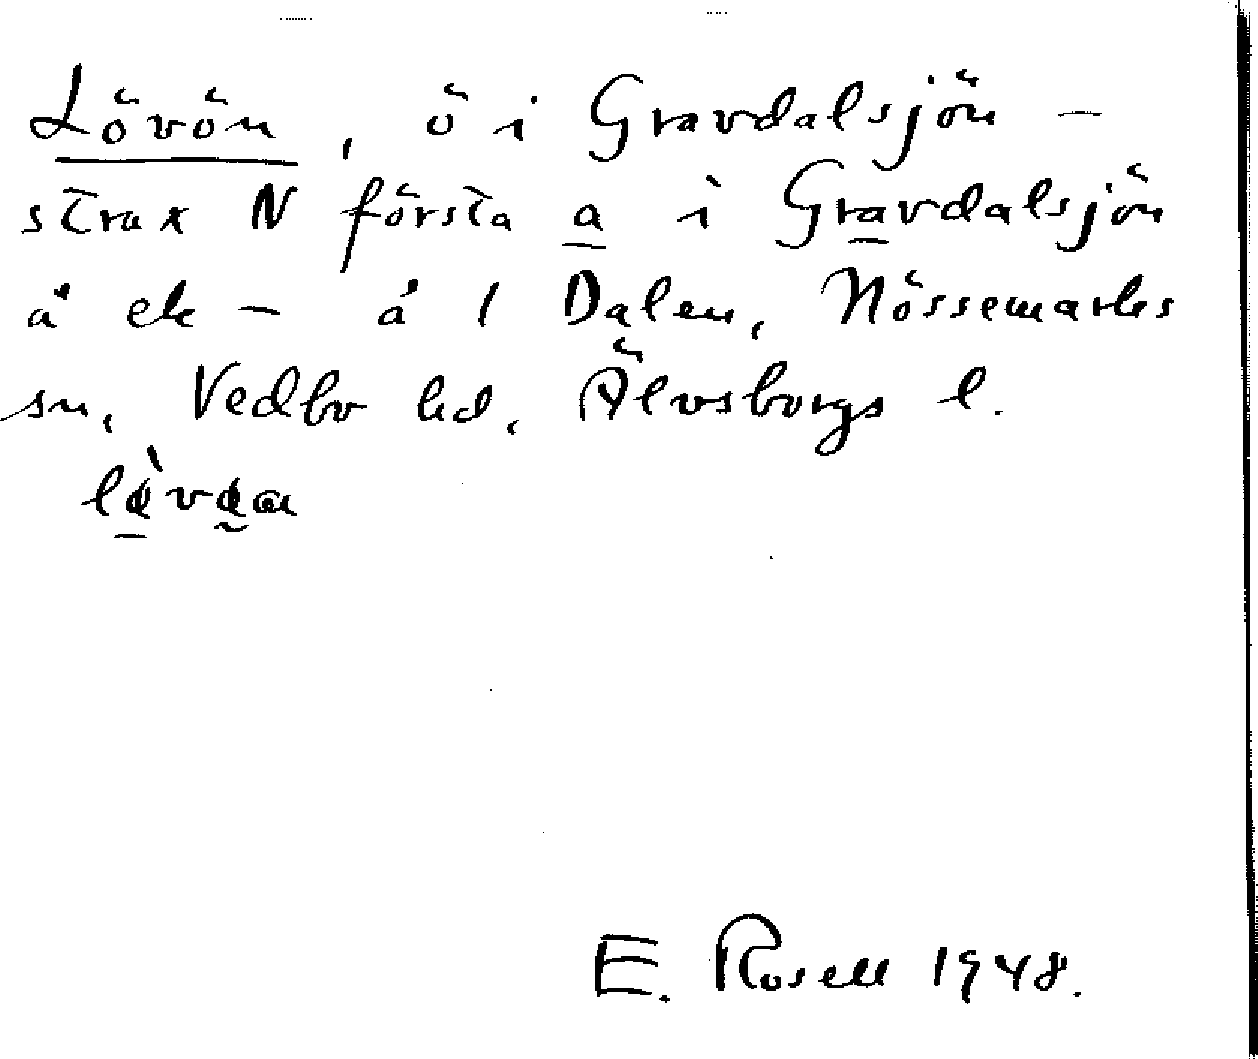 Lövön, ö i Gravdalsjön –
strax N första a i Gravdalsjön
å ek – å 1 Dalen, Nössemarks
sn, Vedbo hd, Älvsborgs l.
E. Rosell 1948.